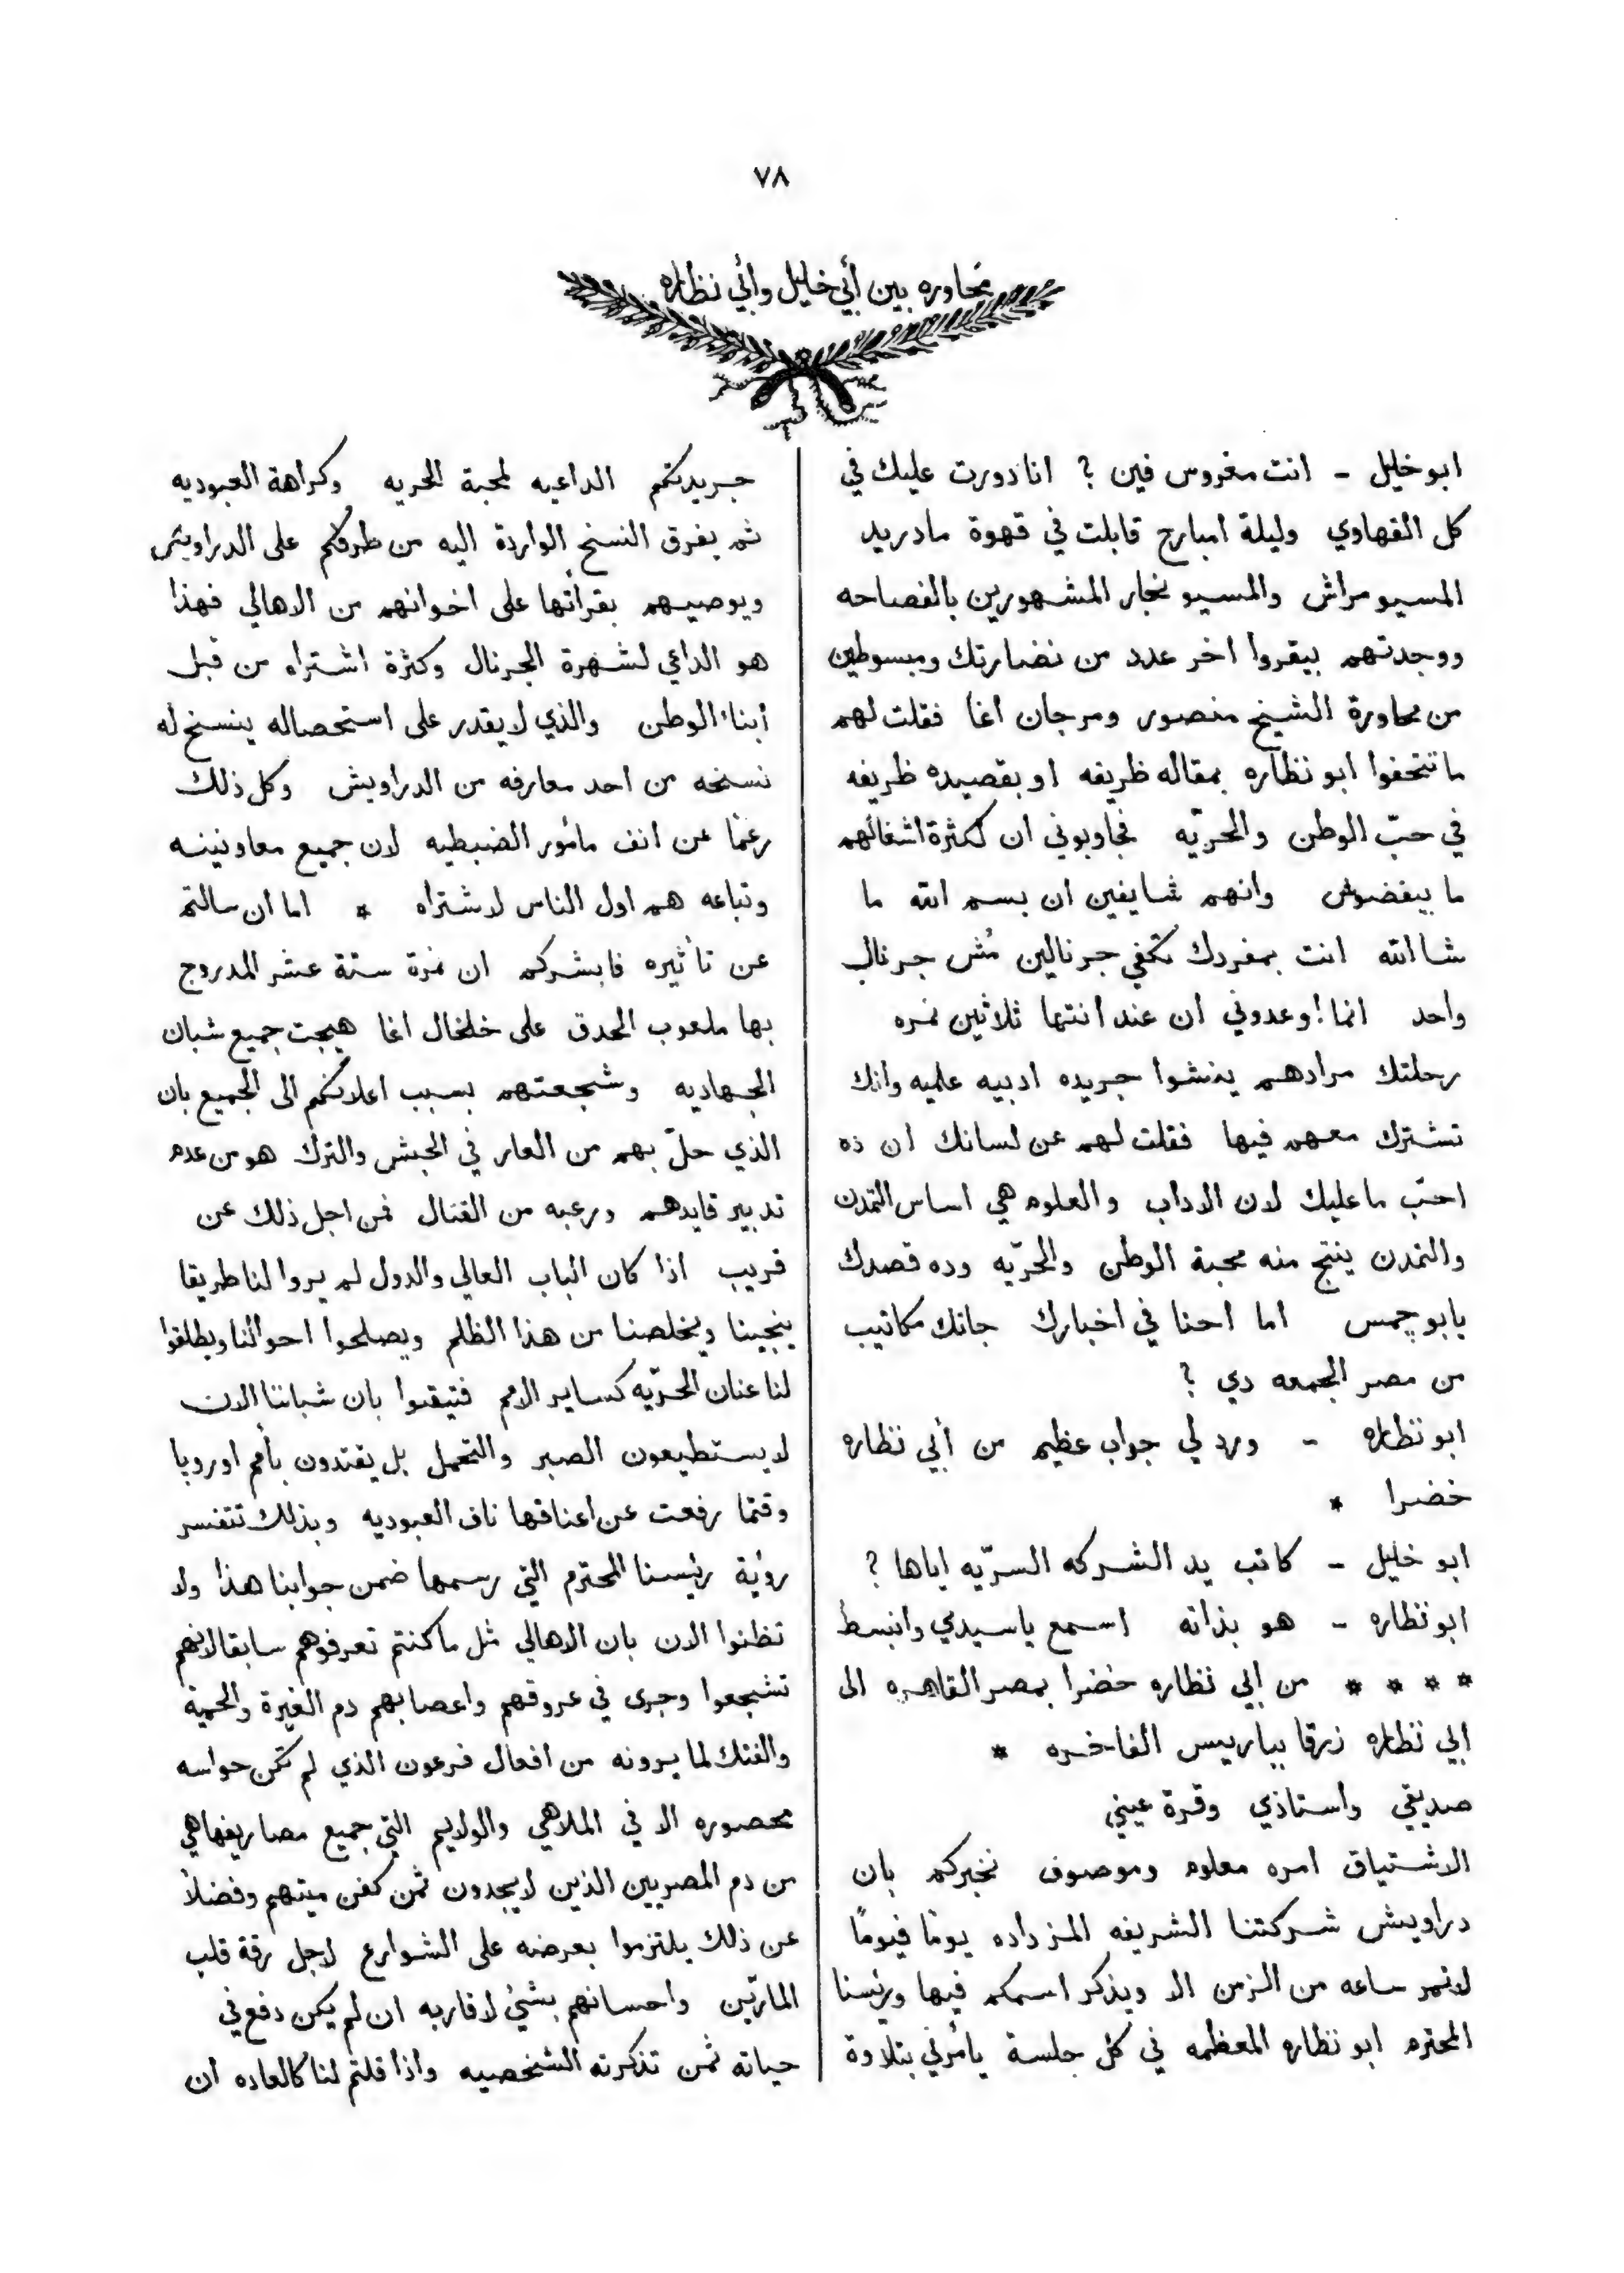 ٧٨
محاوره بين أبي خليل وأبي نظاره
ابو خليل - انت مغروس فين ؟ انا دورت عليك في
كل القهاوي وليلة امبارح قابلت في قهوة مادريد
المسيو مراش والمسيو نجار المشهورين بالفصاحه
ووجدتهم بيقروا اخر عدد من نضارتك ومبسوطين
من محاورة الشيخ منصور ومرجان اغا فقلت لهم
ما تتحفوا ابو نظاره بمقاله ظريفه او بقصيده ظريفه
في حبّ الوطن والحريّه فجاوبوني ان لكثرة اشغالهم
ما بيفضوش وانهم شايفين ان بسم الله ما
شاالله انت بمفردك تكفي جرنالين مُش جرنال
واحد انما اوعدوني ان عند انتها ثلاثين نمره
رحلتك مرادهم ينشوا جريده ادبيه علميه وانك
تشترك معهم فيها فقلت لهم عن لسانك ان ده
احبّ ما عليك لان الاداب والعلوم هي اساس التمدن
والتمدن ينتج منه محبة الوطن والحرّيه وده قصدك
يابو چمس اما احنا في اخبارك جاتك مكاتيب
من مصر الجمعه دي ؟
ابو نظاره - ورد لي جواب عظيم من أبي نظاره
خضرا *
ابو خليل - كاتب يد الشركه السرّيه اياها ؟
ابو نظاره - هو بذاته اسمع ياسيدي وانبسط
* * * * من ابي نظاره خضرا بمصر القاهره الى
ابي نظاره زرقا بباريس الفاخره *
صديقي واستاذي وقرة عيني
الاشتياق امره معلوم وموصوف نخبركم بان
دراويش شركتنا الشريفه المزداده يومًا فيومًا
لاتمر ساعه من الزمن الا ويذكر اسمكم فيها ورئيسنا
المحترم ابو نظاره المعظمه في كل جلسة يأمرني بتلاوة
جريدتكم الداعيه لمحبة الحريه وكراهة العبوديه
ثم يفرق النسخ الواردة اليه من طرفكم على الدراويش
ويوصيهم بقرأتها على اخوانهم من الاهالي فهذا
هو الداعي لشهرة الجرنال وكثرة اشتراه من قبل
أبناء الوطن والذي لايقدر على استحصاله ينسخ له
نسخه من احد معارفه من الدراويش وكل ذلك
رغمًا عن انف مأمور الضبطيه لان جميع معاونينه
وتباعه هم اول الناس لاشتراه * اما ان سالتم
عن تأثيره فابشركم ان نمرة ستة عشر المدروج
بها ملعوب الحدق على خلخال اغا هيجت جميع شبان
الجهاديه وشجعتهم بسبب اعلانكم الى الجميع بان
الذي حلّ بهم من العار في الحبش والترك هو من عدم
تدبير قايدهم ورعبه من القتال فمن اجل ذلك عن
قريب اذا كان الباب العالي والدول لم يروا لنا طريقا
ينجينا ويخلصنا من هذا الظلم ويصلحوا احوالنا ويطلقوا
لنا عنان الحرّيه كساير الامم فتيقنوا بان شباننا الان
لايستطيعون الصبر والتحمل بل يقتدون بأمم اوروبا
وقتما رفعت عن اعناقها ناف العبوديه وبذلك تتفسر
رؤية رئيسنا المحترم التي رسمها ضمن جوابنا هذا ولا
تظنوا الان بان الاهالي مثل ما كنتم تعرفوهم سابقا لانهم
تشجعوا وجرى في عروقهم واعصابهم دم الغيرة والحمية
والفتك لما يرونه من افعال فرعون الذي لم تكن حواسه
محصوره الا في الملاهي والولايم التي جميع مصاريفها هي
من دم المصريين الذين لايجدون ثمن كفن ميتهم وفضلاً
عن ذلك يلتزموا بعرضه على الشوارع لاجل رقة قلب
المارّين واحسانهم بشئ لاقاربه ان لم يكن دفع في
حياته ثمن تذكرته الشخصيه واذا قلتم لنا كالعاده ان